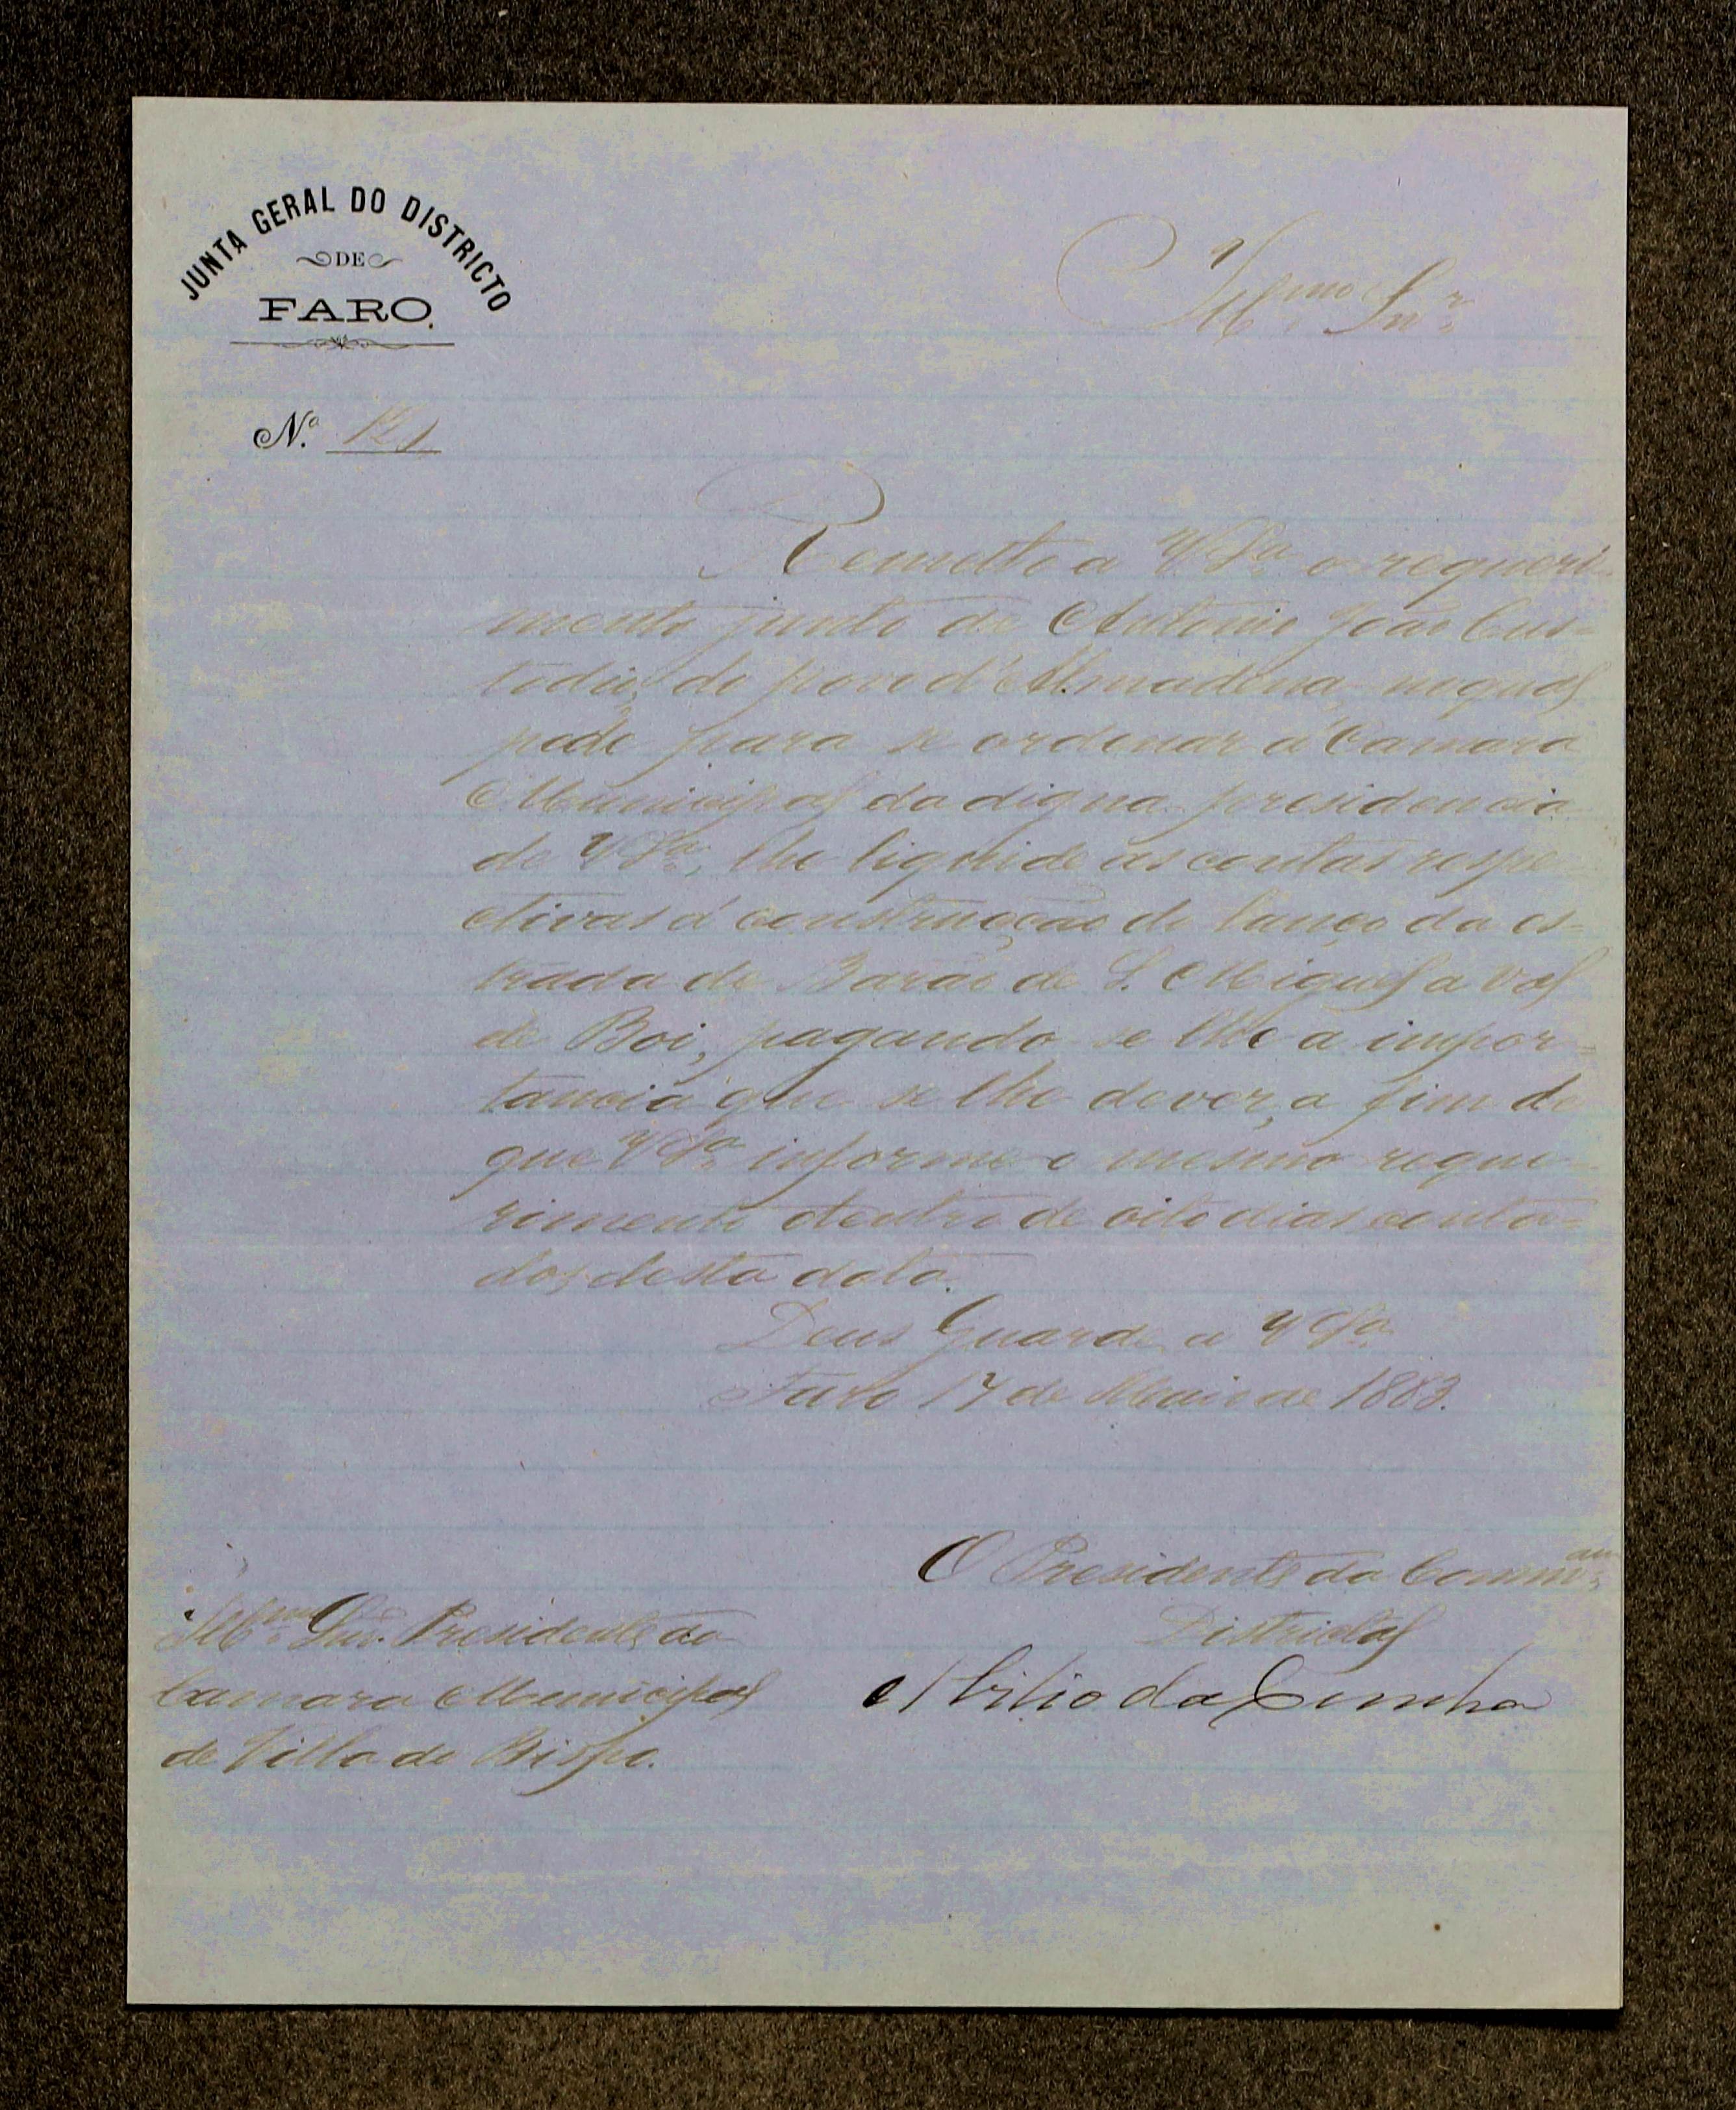 JUNTA GERAL DO DISTRICTO
DE
FARO.
Illmo. Snr.
N.º 121
Remetto a V. Sa. o requeri-
mento junto de Antonio João Cus-
todio, do povo d'Almadena, no qual
pede para se ordenar á Camara
Municipal da digna presidencia
de V. Sa., lhe liquide as contas respe
ctivas á construcção do lanço da es-
trada de Barão de S. Miguel a Val
de Boi, pagando se lhe a impor=
tancia que se lhe dever, a fim de
que V. Sa. informe o mesmo reque-
rimento dentro de oito dias conta=
dos desta data.
Deus Guarde a V. Sa.
Faro 17 de Maio de 1883.
O Presidente da Commam.
Districtal
Abilio da Cunha
Illmo. Snr. Presidente da
Camara Municipal
de Villa do Bispo.